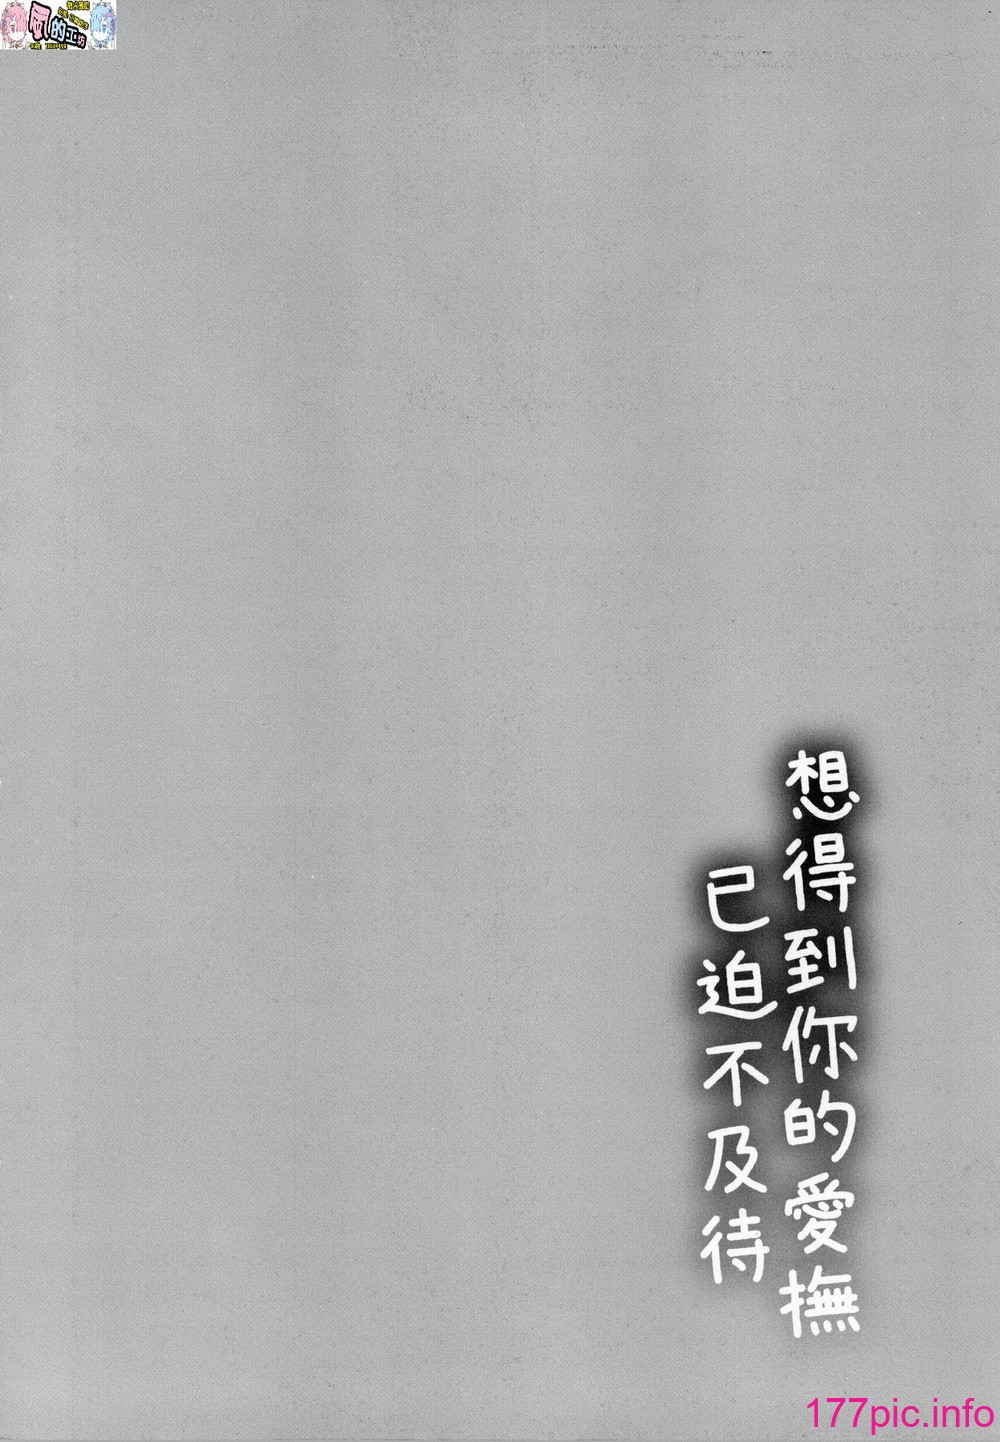 氣的工坊
想得到你的愛撫
已迫不及待
177pic.info